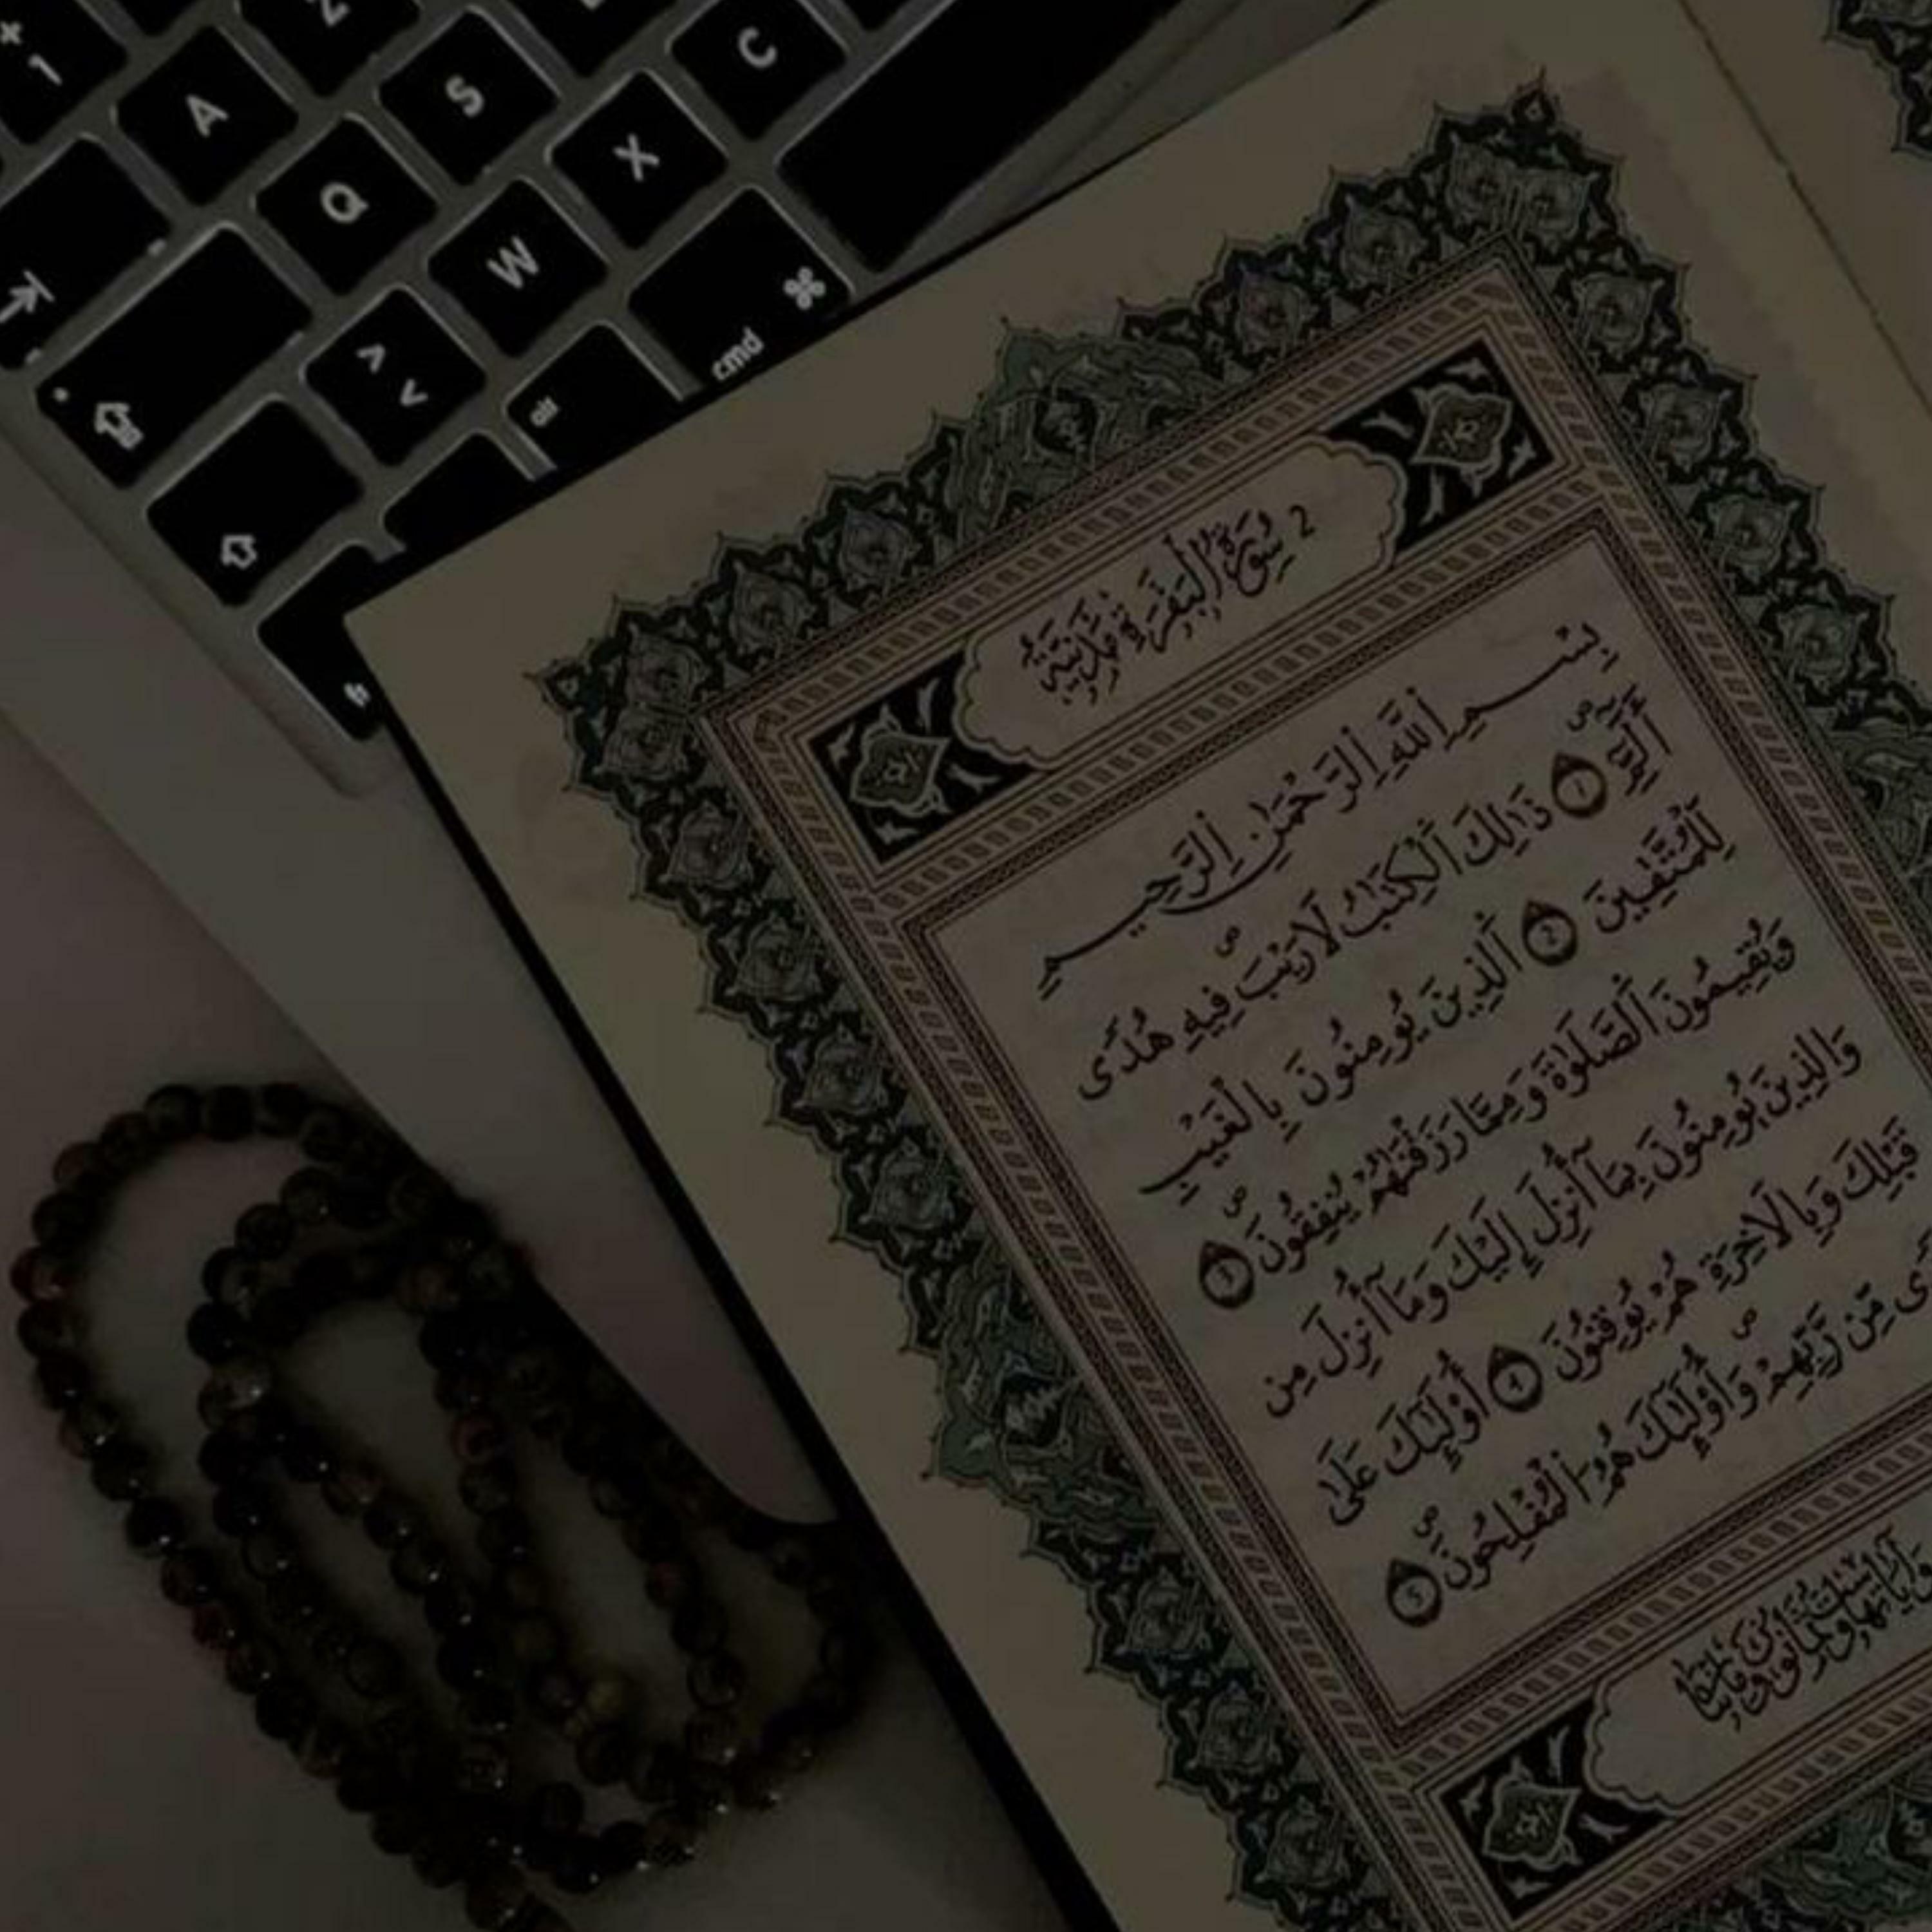 1 Z C
A S
Q X
W ⌘
> < cmd
alt
fn
2 سُورَةُ الْبَقَرَةِ مَدَنِيَّةٌ
بِسْمِ اِ۬للَّهِ اِ۬لرَّحْمَٰنِ اِ۬لرَّحِيمِ
أَلَٓمِّٓۖ 1 ذَٰلِكَ اَ۬لْكِتَٰبُ لَا رَيْبَ فِيهِۖ هُدىٗ
لِّلْمُتَّقِينَ 2 اَ۬لذِينَ يُومِنُونَ بِالْغَيْبِ
وَيُقِيمُونَ اَ۬لصَّلَوٰةَ وَمِمَّا رَزَقْنَٰهُمْ يُنفِقُونَۖ 3
وَالذِينَ يُومِنُونَ بِمَآ أُنزِلَ إِلَيْكَ وَمَآ أُنزِلَ مِن
قَبْلِكَ وَبِالَاخِرَةِ هُمْ يُوقِنُونَ 4 أُوْلَٰٓئِكَ عَلَىٰ
مِّن رَّبِّهِمْۖ وَأُوْلَٰٓئِكَ هُمُ اُ۬لْمُفْلِحُونَۖ 5